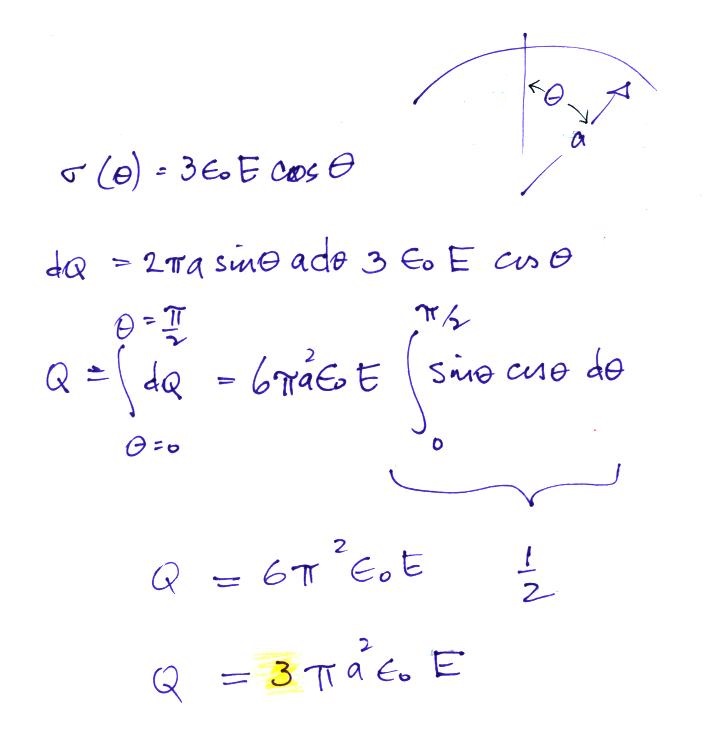 θ
a
σ(θ) = 3ϵ₀E cos θ
dQ = 2πa sinθ adθ 3 ϵ₀ E cos θ
θ = π/2 π/2
Q = ∫ dQ = 6πa²ϵ₀E ∫ sinθ cosθ dθ
θ=0 0
Q = 6π²ϵ₀E 1/2
Q = 3πa²ϵ₀ E